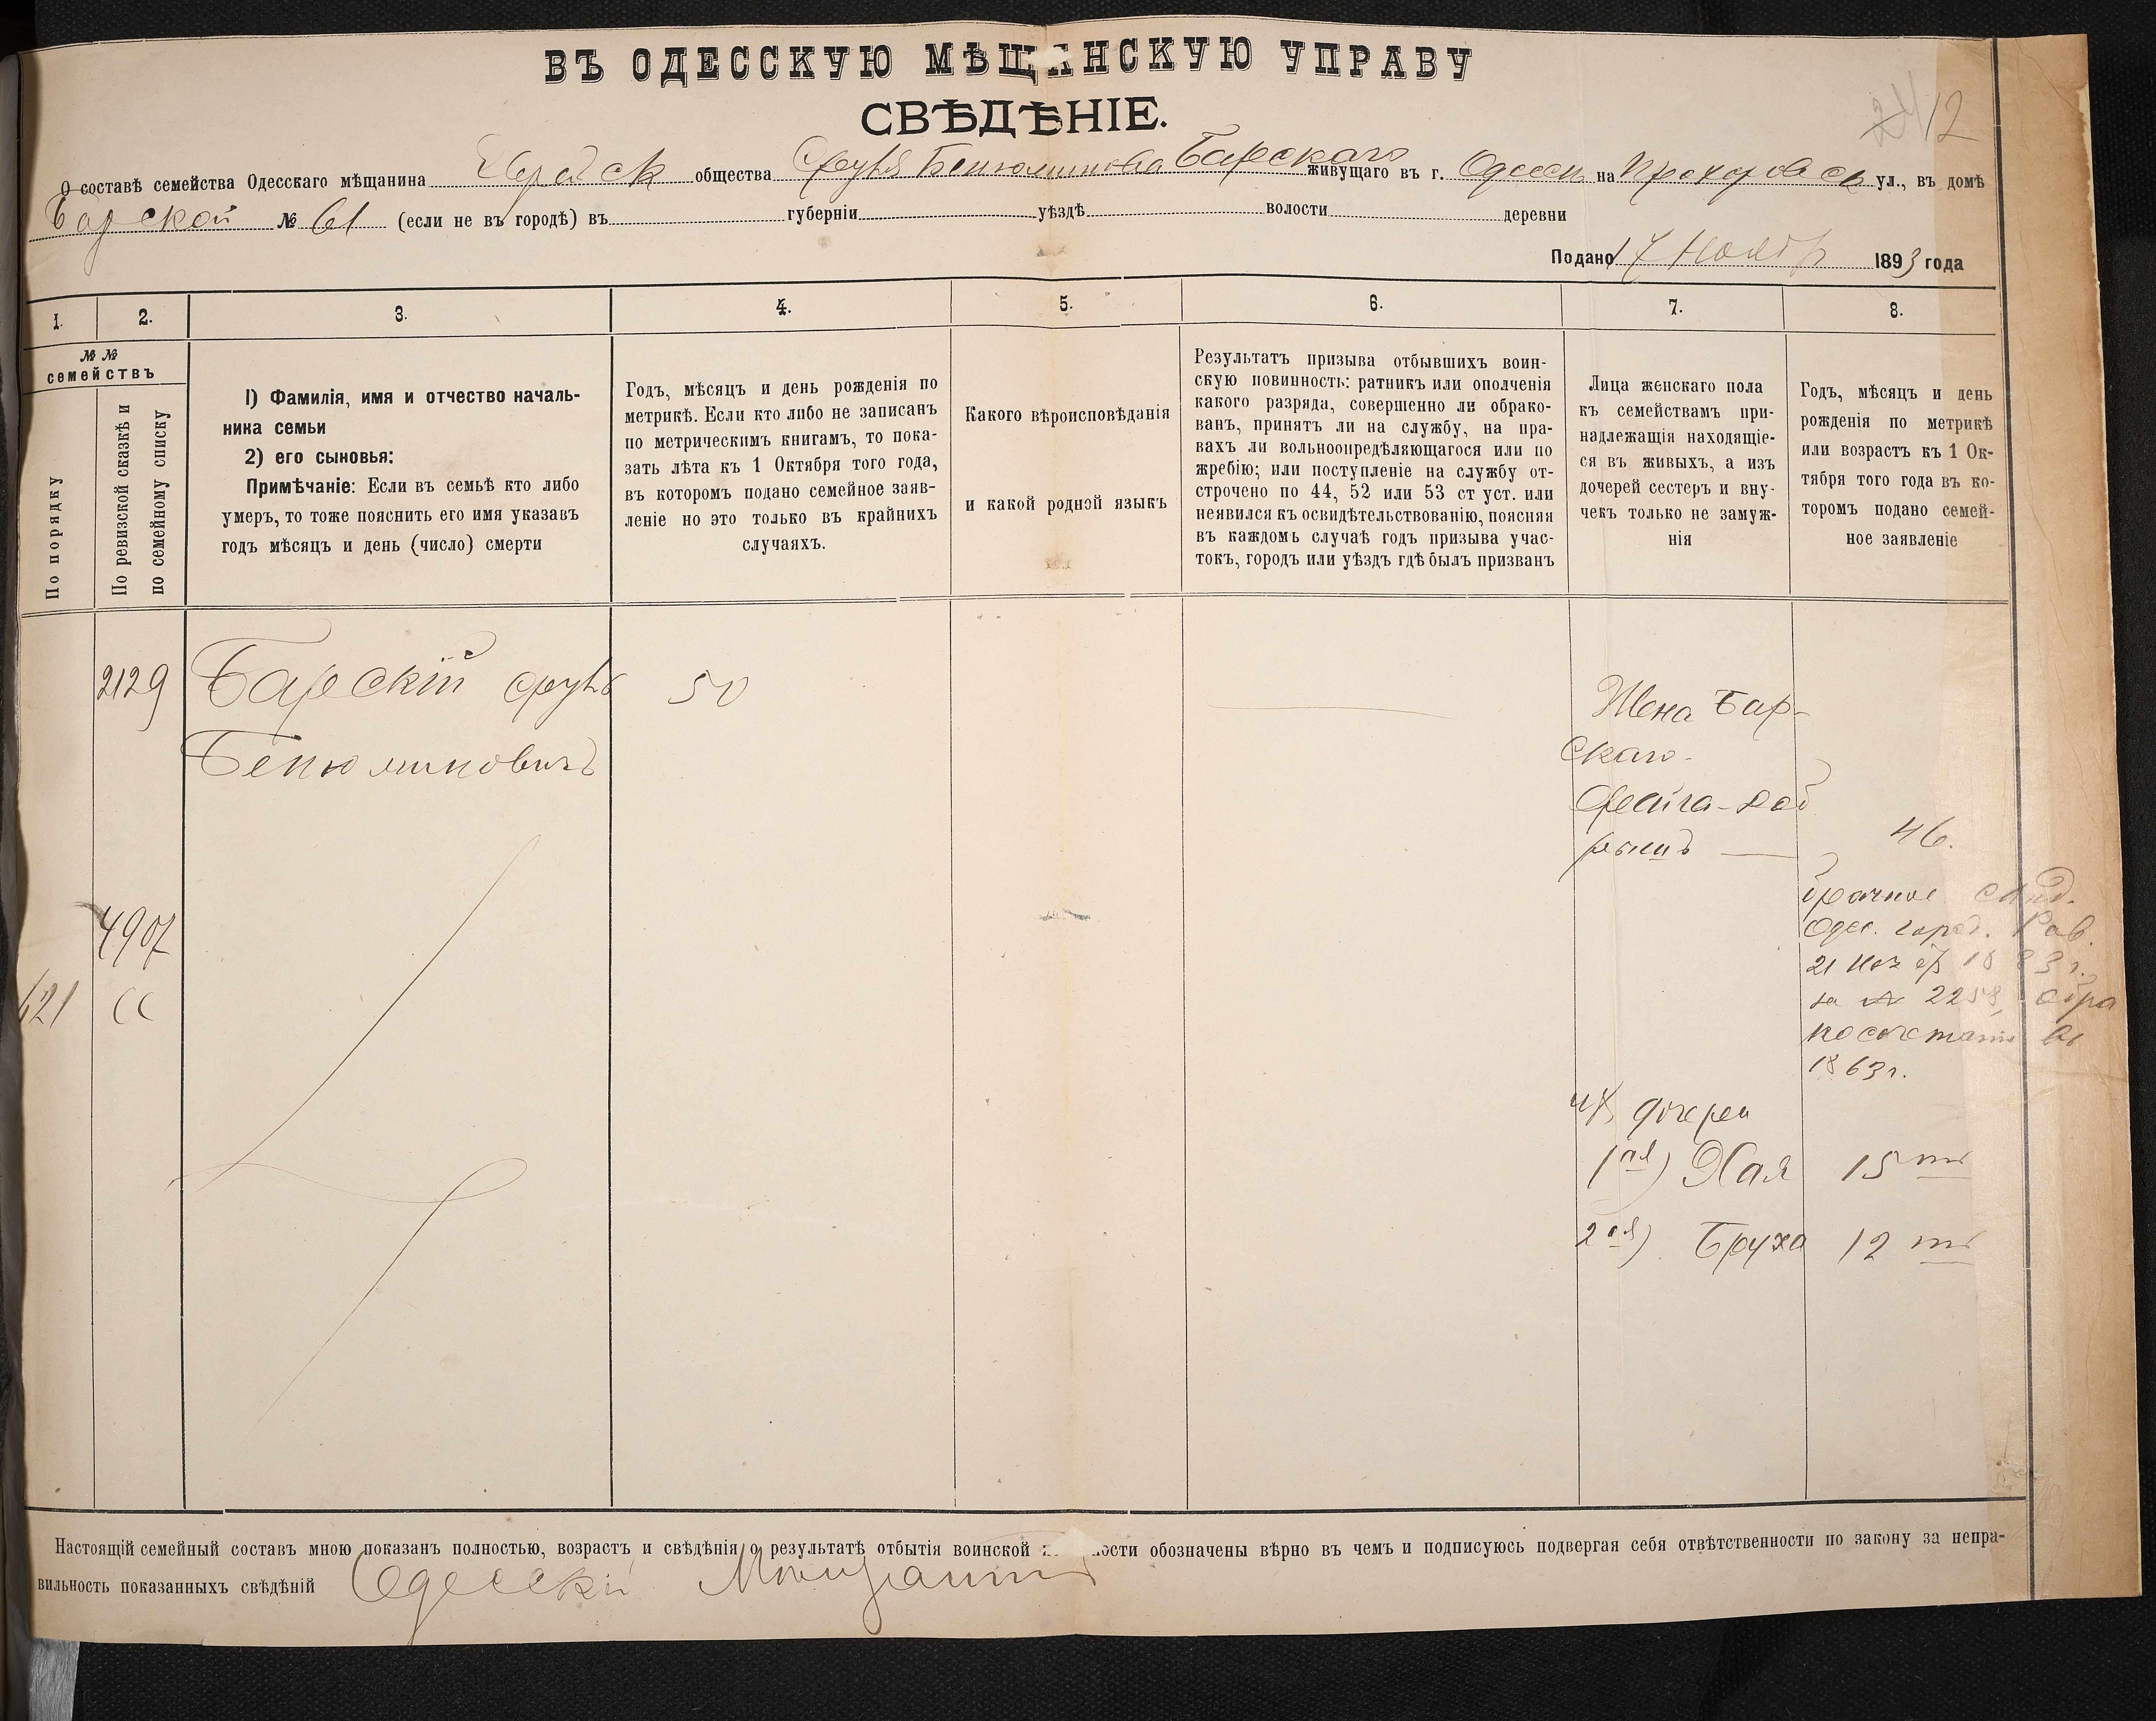 ВЪ ОДЕССКУЮ МѢЩАНСКУЮ УПРАВУ
СВѢДѢНІЕ.
12
О составѣ семейства Одесскаго мѣщанина Еврейск общества Сруля Бенюминова Барскаго живущаго въ г. Одессѣ на Прохоровск ул., въ домѣ
Барской № 61 (если не въ городѣ) въ губерніи уѣздѣ волости деревни
Подано 17 Ноябр 1893 года
1. 2. 3. 4. 5. 6. 7. 8.
№№
семействъ
По порядку
По ревизской сказкѣ и
по семейному списку
1) Фамилія, имя и отчество началь-
ника семьи
2) его сыновья:
Примѣчаніе: Если въ семьѣ кто либо
умеръ, то тоже пояснить его имя указавъ
годъ мѣсяцъ и день (число) смерти
Годъ, мѣсяцъ и день рожденія по
метрикѣ. Если кто либо не записанъ
по метрическимъ книгамъ, то пока-
зать лѣта къ 1 Октября того года,
въ которомъ подано семейное заяв-
леніе но это только въ крайнихъ
случаяхъ.
Какого вѣроисповѣданія
и какой родной языкъ
Результатъ призыва отбывшихъ воин-
скую повинность: ратникъ или ополченія
какого разряда, совершенно ли обрако-
ванъ, принятъ ли на службу, на пра-
вахъ ли вольноопредѣляющагося или по
жребію; или поступленіе на службу от-
строчено по 44, 52 или 53 ст уст. или
неявился къ освидѣтельствованію, поясняя
въ каждомъ случаѣ годъ призыва учас-
токъ, городъ или уѣздъ гдѣ былъ призванъ
Лица женскаго пола
къ семействамъ при-
надлежащія находящіе-
ся въ живыхъ, а изъ
дочерей сестеръ и вну-
чекъ только не замуж-
нія
Годъ, мѣсяцъ и день
рожденія по метрикѣ
или возрастъ къ 1 Ок-
тября того года въ ко-
торомъ подано семей-
ное заявленіе
2129 Барскій Сруль 50
Бенюминовичъ
Жена Бар-
скаго
Фейга-Доб
рышъ — 46.
4907
621
брачное свид.
Одес. город. Рав.
21 Нояб 1883 г.
за № 2258, о бра
косочетаніи въ
1863 г.
ихъ дочери
1ая) Хая 15 ти
2ая) Бруха 12 ти
Настоящій семейный составъ мною показанъ полностью, возрастъ и свѣдѣнія о результатѣ отбытія воинской ности обозначены вѣрно въ чемъ и подписуюсь подвергая себя отвѣтственности по закону за непра-
вильность показанныхъ свѣдѣній Одесскій Мѣщанинъ